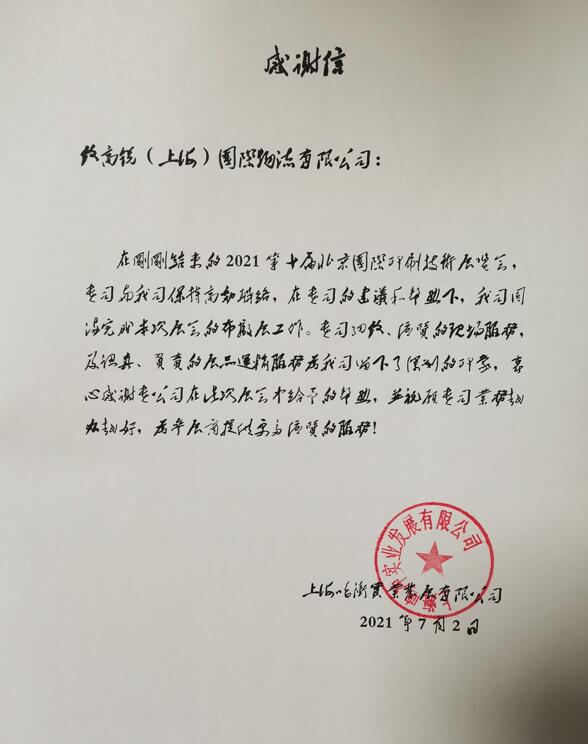 感谢信
致高锐（上海）国际物流有限公司：
在刚刚结束的2021第十届北京国际印刷技术展览会，
贵司与我司保持高效联络，在贵司的建议和帮助下，我司圆
满完成本次展会的布撤展工作。贵司细致、优质的现场服务，
及认真、负责的展品运输服务为我司留下了深刻的印象，衷
心感谢贵公司在此次展会中给予的帮助，并祝愿贵司业务越
办越好，为参展商提供更多优质的服务！
上海 实业发展有限公司
上海 实业发展有限公司
2021年7月2日